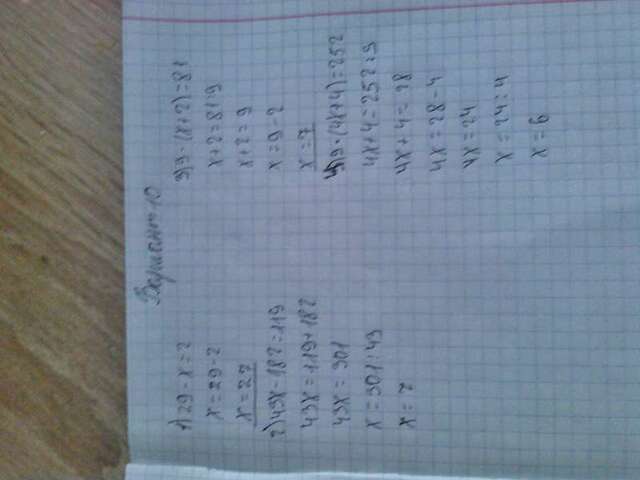 Вариант 10
1) 29 - x = 2
x = 29 - 2
x = 27
2) 43x - 182 = 119
43x = 119 + 182
43x = 301
x = 301 : 43
x = 7
3) 9 · (x + 2) = 81
x + 2 = 81 : 9
x + 2 = 9
x = 9 - 2
x = 7
4) 9 · (4x + 4) = 252
4x + 4 = 252 : 9
4x + 4 = 28
4x = 28 - 4
4x = 24
x = 24 : 4
x = 6